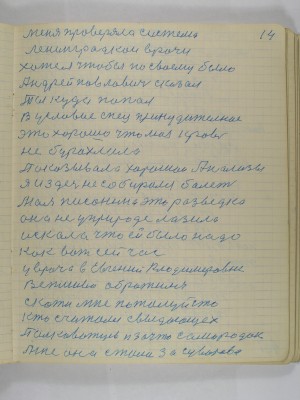 14
меня проверяла система
ленинградкой врачи
хотел чтобы по своему было
Андрей павлович сказал
Ты куда попал
В условие спец принудительное
это хорошо что моя кровь
не бурахлила
Показывала хорошие Анализы
Я здесь не собирался болеть
Моя писанина это разведка
она не у природе лазила
искала что ей было надо
как вот сей час
у врача в Евгений Владимировне
Вежливо обратимь
скажи мне потомуйсто
кто считали свидающех
Полковатиць изочто самородок
мне она стала За суворова